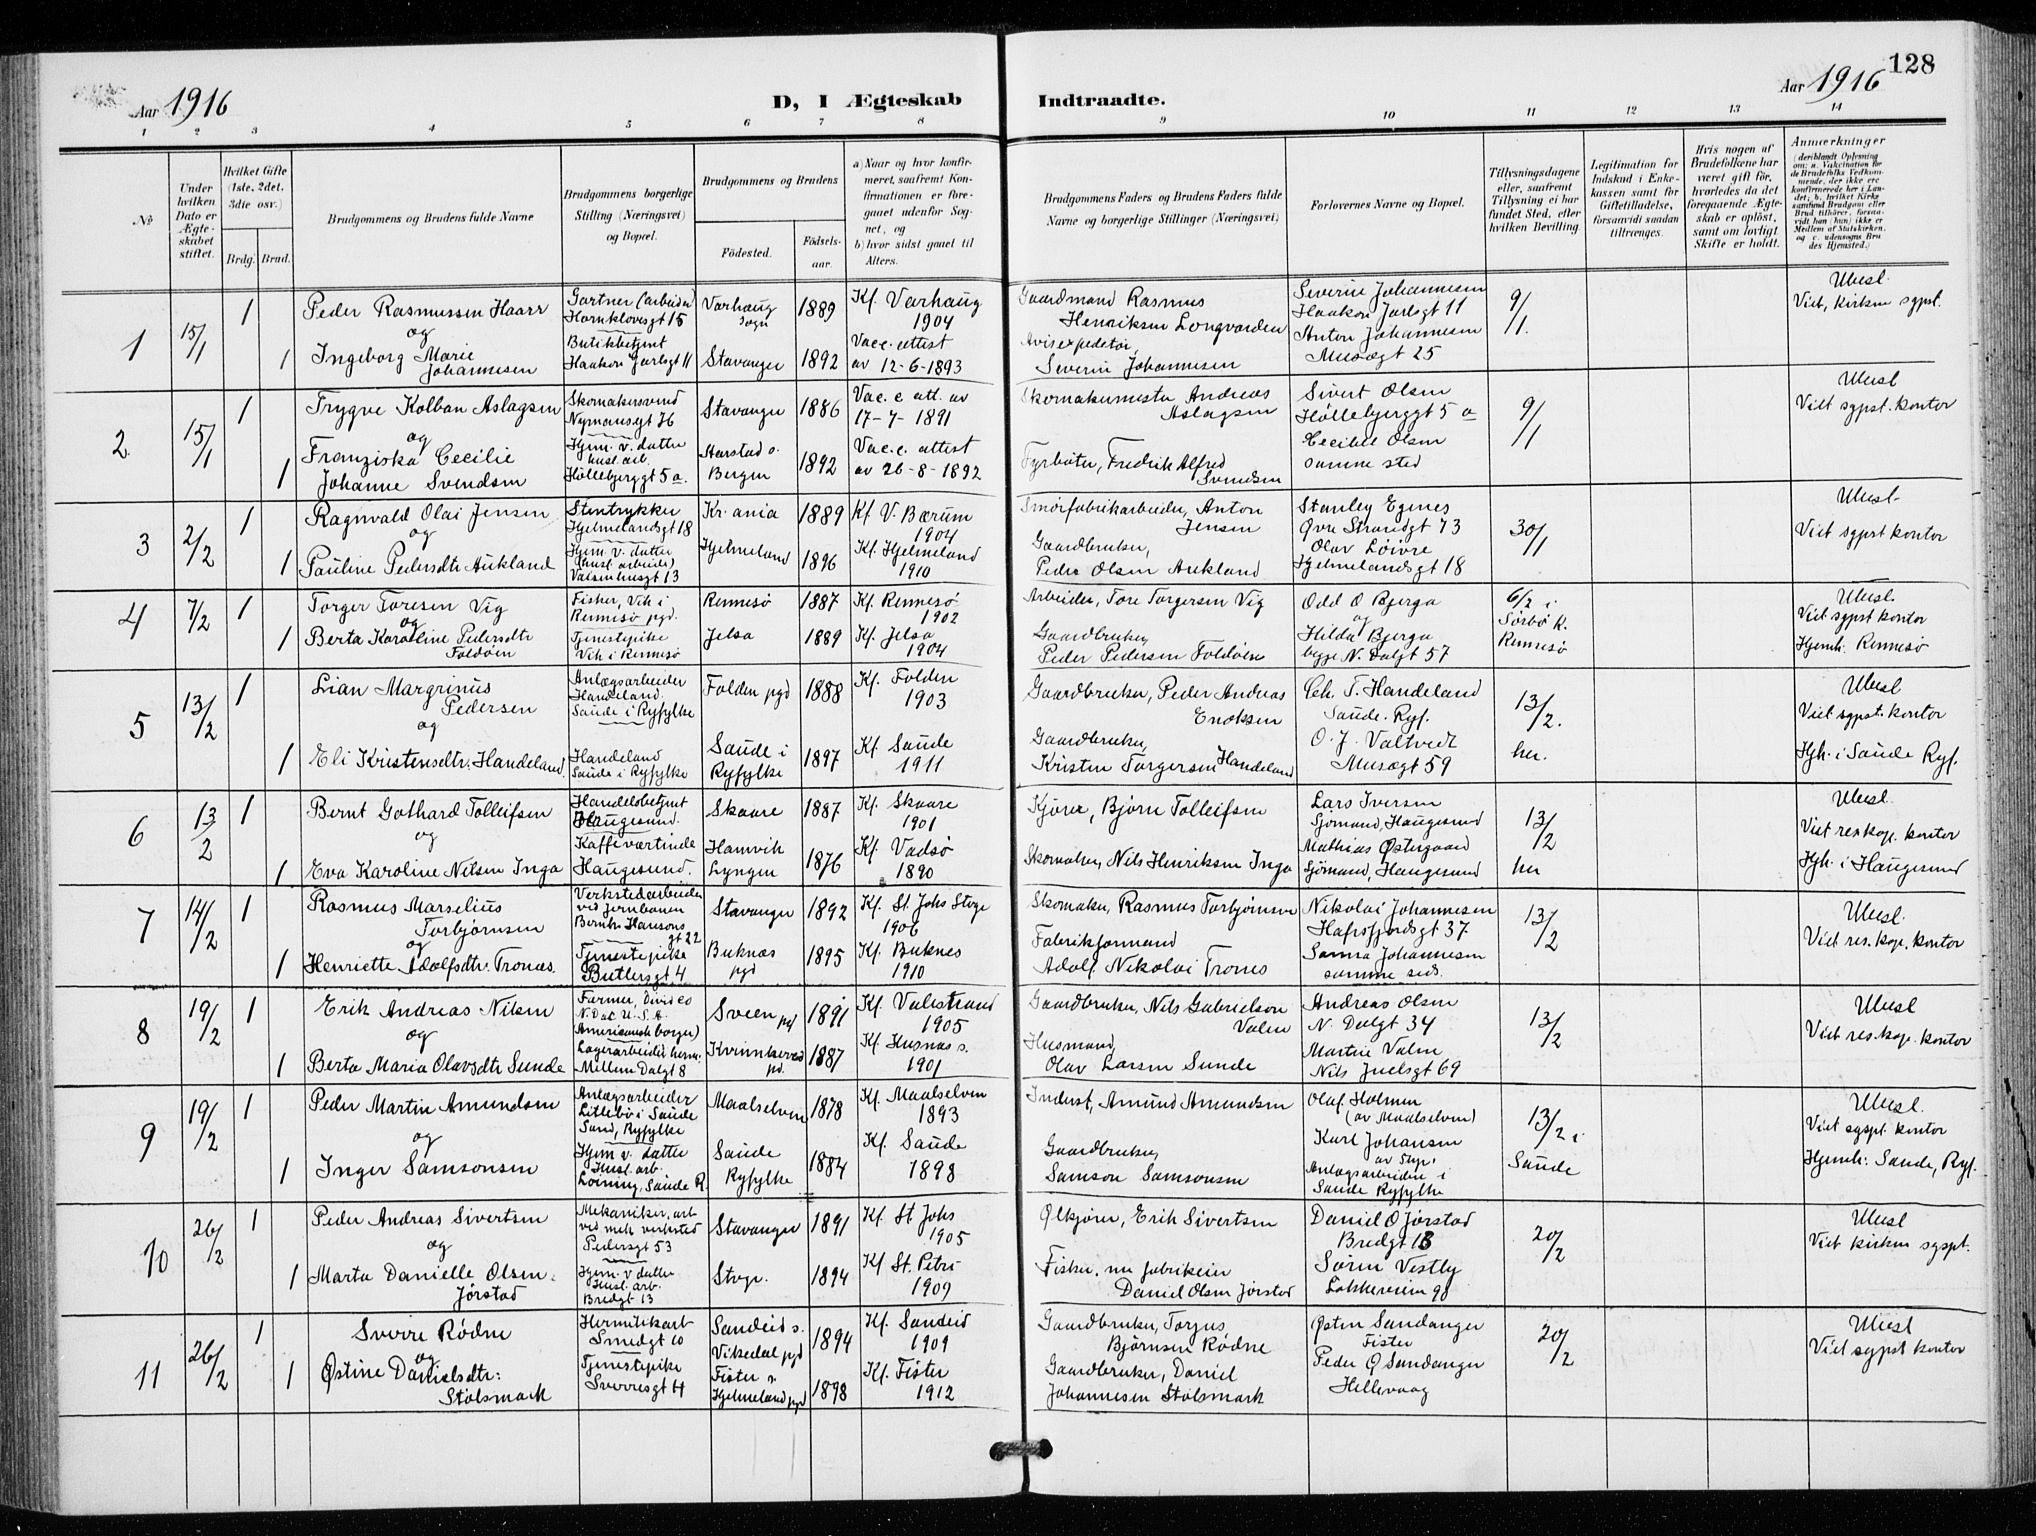 128
Aar 1916
D, I Ægteskab Indtraadte.
Aar 1916
1 2 3 4 5 6 7 8 9 10 11 12 13 14
No
Under hvilken Dato er Ægteskabet stiftet.
Hvilket Gifte (1ste, 2det, 3die osv.)
Brdg. Brud.
Brudgommens og Brudens fulde Navne
Brudgommens borgerlige Stilling (Næringsvei) og Bopæl.
Brudgommens og Brudens
Fødested.
Fødselsaar.
a) Naar og hvor konfirmeret, saafremt Konfirmationen er foregaaet udenfor Sognet, og
b) hvor sidst gaaet til Alters.
Brudgommens Faders og Brudens Faders fulde Navne og borgerlige Stillinger (Næringsvei)
Forlovernes Navne og Bopæl.
Tillysningsdagene eller, saafremt Tillysning ei har fundet Sted, efter hvilken Bevilling.
Legitimation for Indskud i Enkekassen samt for Giftetilladelse, forsaavidt saadan tiltrænges.
Hvis nogen af Brudefolkene har været gift før, hvorledes da det foregaaende Ægteskab er opløst, samt om lovligt Skifte er holdt.
Anmærkninger
(deriblandt Oplysning om: a. Vakcination for de Brudefolks Vedkommende, der ikke ere konfirmerede her i Landet; b. hvilket Kirkesamfund Brudgom eller Brud tilhører, forsaavidt han (hun) ikke er Medlem af Statskirken, og c. udensogns Brudes Hjemsted.)
1
15/1
1
Peder Rasmussen Haarr
og
1
Ingeborg Marie
Johannesen
Gartner (arbeider)
Hornklovesgt 15
Butikbetjent
Haakon Jarlsgt 11
Varhaug
sogn
1889
Stavanger 1892
Kf. Varhaug
1904
Vacc. attest
av 12-6-1893
Gaardmand Rasmus
Henriksen Longvarden
Avisexpeditør,
Severin Johannesen
Severin Johannesen
Haakon Jarlsgt 11
Anton Johannesen
Musægt 25
9/1.
Ubesl.
Viet, Kirken sypst.
2.
15/1
1
Trygve Kolban Aslagsen
og
1
Franziska Cecilie
Johanne Svendsen
Skomakersvend
Nymansgt 76
Hjem. v. datter
husl. arb.
Høllebjerggt 5 a.
Stavanger 1886
Aarstad s.
Bergen
1892
Vac. c att. av
17-7-1891
Vac. c. attest
av 26-8-1892
Skomakermester Andreas
Aslagsen
Fyrbøter, Fredrik Alfred
Svendsen
Sivert Olsen
Høllebjerggt 5 a
Cecilie Olsen
samme sted
9/1
Ubesl
Viet sypst. kontor
3
2/2
1
Ragnvald Olai Jensen
og
1
Pauline Pedersdtr Aukland
Stentrykker
Hjelmelandsgt 18
Hjem. v. datter
(husl. arbeide)
Vaisenhusgt 13
Kr.ania 1889
Hjelmeland 1896
Kf V. Bærum
1904
Kf. Hjelmeland
1910
Smørfabrikarbeider, Anton
Jensen
Gaardbruker,
Peder Olsen Aukland
Stanley Egenes
Øvre Strandgt 73
Olav Løivre
Hjelmelandsgt 18
30/1
Ubesl.
Viet sypst kontor
4
7/2
1
Torger Toresen Vig
og
1
Berta Karoline Pedersdtr
Foldøen
Fisker, Vik i
Rennesø pgd.
Tjenestepike
Vik i Rennesø
Rennesø 1887
Jelsa 1889
Kf. Rennesø
1902
Kf. Jelsa
1904
Arbeider, Tore Torgersen Vig
Gaardbruker
Peder Pedersen Foldøen
Odd O Bjerga
og
Hilda Bjerga
begge N. Dalgt 57
6/2 i
Sørbø K.
Rennesø
Ubesl.
Viet sypst kontor
Hjemh. Rennesø
5
13/2
1
Lian Margrinus
Pedersen
og
1
Eli Kristensdtr. Handeland.
Anlægsarbeider
Handeland.
Saude i Ryfylke
Handeland
Saude i Ryfylke
Folden pgd 1888
Saude i
Ryfylke
1897
Kf. Folden
1903
Kf. Saude
1911
Gaardbruker, Peder Andreas
Enoksen
Gaardbruker,
Kristen Torgersen Handeland
Chr. T. Handeland
Saude. Ryf.
O. J. Valtvedt
Musægt 59
13/2.
her.
Ubesl
Viet sypst. kontor
Hjh. i Saude Ryf.
6
13/2
1
Bernt Gothard Tolleifsen
og
1
Eva Karoline Nilsen Inga
Handelsbetjent
Haugesund.
Kaffeværtinde
Haugesund.
Skaare 1887
Hamvik
Lyngen
1876
Kf. Skaare
1901
Kf. Vadsø
1890
Kjører, Bjørn Tolleifsen
Skomaker, Nils Henriksen Inga
Lars Iversen
Sjømand, Haugesund
Mathias Østergaard
Sjømand, Haugesund
13/2
her
Ubesl.
Viet res.kap. kontor
Hjh. i Haugesund
7
14/2
1
Rasmus Marselius
Torbjørnsen
og
1
Henriette Adolfsdtr. Tronæs.
Verkstedarbeider
ved jernbanen
Berntr. Hansens
gt 22
Tjenestepike
Butlersgt 4
Stavanger 1892
Buknæs
pgd
1895
Kf. St Johs Stvgr
1906
Kf. Buknes
1910
Skomaker, Rasmus Torbjørnsen
Fabrikformand
Adolf Nikolai Trones
Nikolai Johannesen
Hafrsfjordsgt 37
Sanna Johannesen
samme sted.
13/2
Ubesl.
Viet res. kap. kontor
8
19/2
1
Erik Andreas Nilsen
og
1
Berta Maria Olavsdtr Sunde
Farmer, Divide Co
N. Dac U.S.A.
Amerikansk borger)
Lagerarbeider herm.
Mellem Dalgt 8
Sveen pgd 1891
Kvinnherred
pd.
1887
Kf Valestrand
1905
Kf. Husnæs s.
1901
Gaardbruker, Nils Gabrielson
Valen
Husmand,
Olav Larsen Sunde
Andreas Olsen
N. Dalgt 34
Martin Valen
Nils Juelsgt 69
13/2
Ubesl
Viet res.kap. kontor
9
19/2
1
Peder Martin Amundsen
og
1
Inger Samsonsen
Anlægsarbeider
Littlebø i Saude
Sand, Ryfylke
Hjem v. datter
Husl. arb.
Løining, Saude R.
Maalselven 1878
Saude
Ryfylke
1884
Kf. Maalselven
1893
Kf. Saude
1898
Inderst, Amund Amundsen
Gaardbruker,
Samson Samsonsen
Olaf Holmen
(av Maalselven)
Karl Johansen
Anlægsarbeidere i
Saude Ryfylke
13/2 i
Saude
Ubesl.
Viet sypst. kontor
Hjemh: Saude, Ryf.
10
26/2
1
Peder Andreas Sivertsen
og
1
Marta Danielle Olsen.
Jørstad
Mekaniker, arb
ved mek verksted
Pedersgt 53
Hjem. v datter
Husl. arb.
Bredgt 13
Stavanger 1891
Stvgr. 1894
Kf. St Johs
1905
Kf St. Petri
1909
Ølkjører, Erik Sivertsen
Fisker, nu fabrikeier
Daniel Olsen Jørstad
Daniel O Jørstad
Bredgt 13
Søren Vestby
Løkkeveien 98
20/2
Ubesl
Viet kirken sypst.
11
26/2
1
Sverre Rødne
og
1
Østine Danielsdtr:
Stølsmark
Hermitikarb
Smedgt 10
Tjenestepike
Sverresgt 4
Sandeid s.
Vikedal pgd
1894
Fister s
Hjelmeland pgd
1898
Kf. Sandeid
1909
Kf. Fister
1912
Gaardbruker, Torjus
Bjørnsen Rødne
Gaardbruker, Daniel
Johannesen Stølsmark
Østen Sandanger
Fister
Peder Ø Sandanger
Hellevaag
20/2
Ubesl
Viet sypst kontor